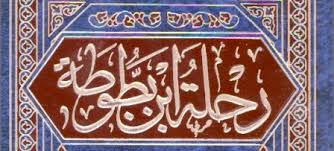 رحلة ابن بطوطة